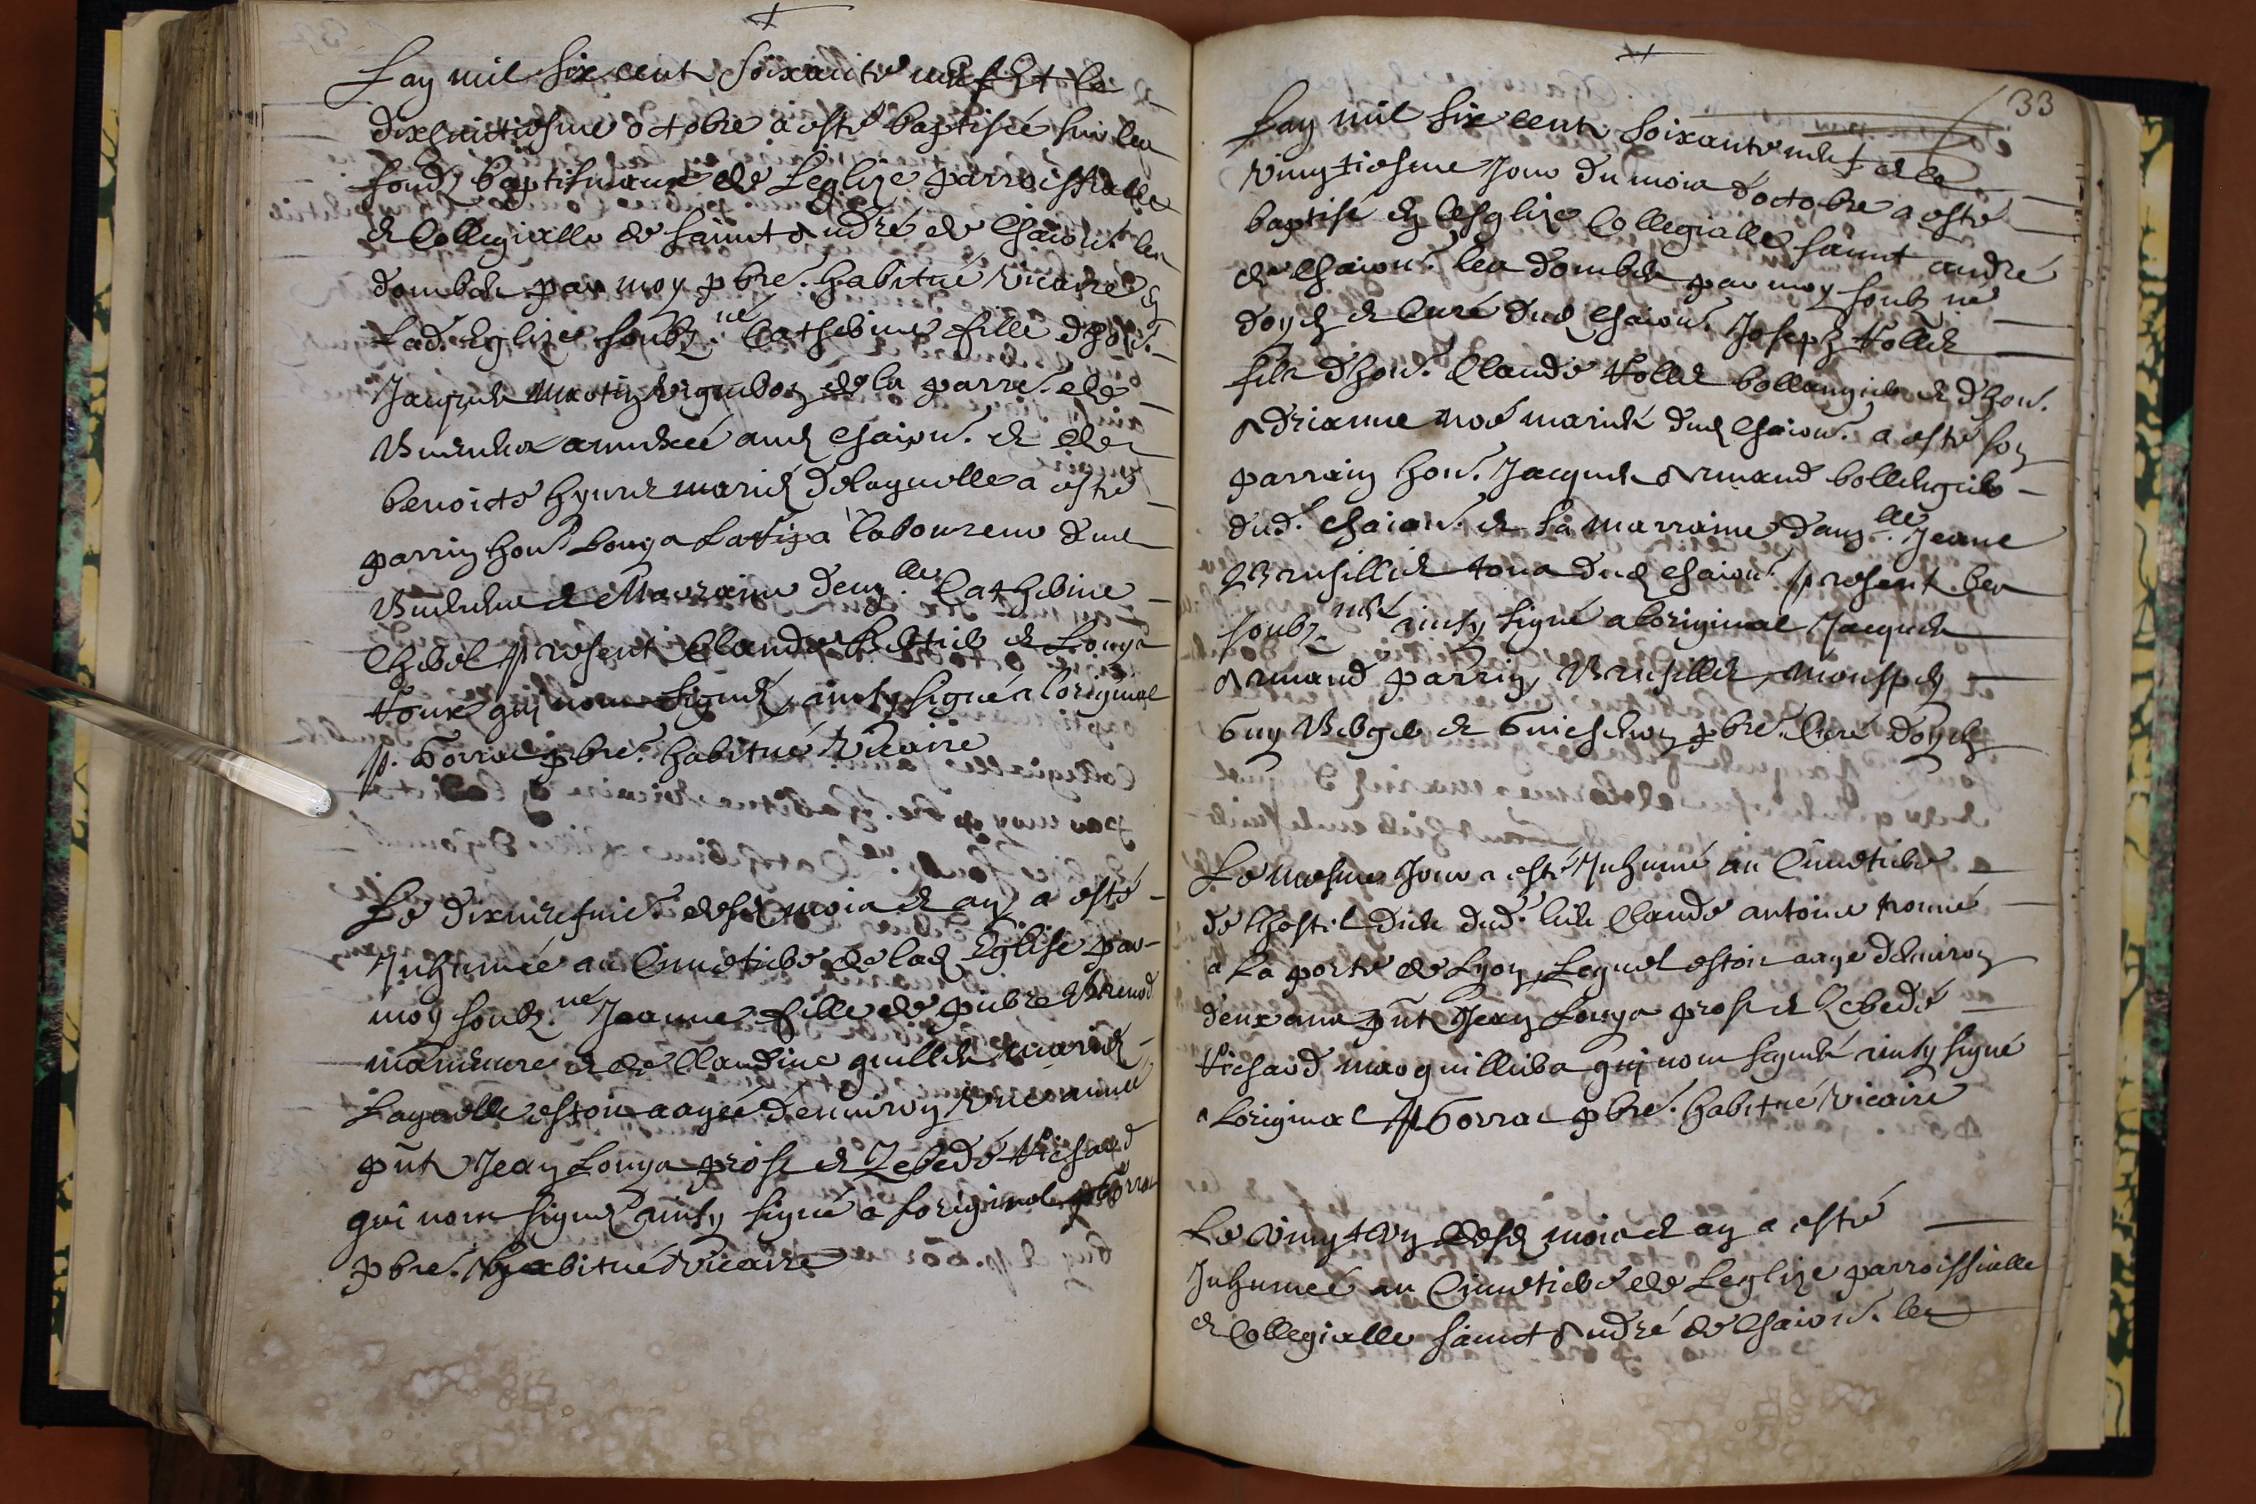 Lan mil six cent soixante neuf et le
dixhuictiesme octobre a esté baptisée sur les
fondz baptismaux de Leglize parroissialle
et Collegialle de Sainct André de Chaion. les
dombes par moy pbre. habitué vicaire en
Lad. Eglize soubz.né Catherine fille d'hon.
Jacques vigneron de la parre. de
annexée aud Chaion. et de
benoicte mariez delaquelle a esté
parrin hon. Louys laboureur dud
et Marraine damlle. Catherine
present Claude et Louys
Roux qui nont signez ainsy signé a loriginal
p. Gorrat pbre. habitué vicaire
Le dixneufvie. desd mois et an a esté
Inhumée au Cimetiere de lad Eglise par
moy soubz.né Jeanne fille de pierre
et de Claudine mariez
Laquelle estoit aagée denviron une année
pnt Jean Louys prost et Zebedé Richard
qui nont signez ainsy signé a loriginal p Gorrat
pbre. habitué vicaire
33
Lan mil six cent soixante neuf et le
vingtiesme Jour du mois doctobre a esté
baptisé en lesglize Collegialle sainct andré
de Chaion. les dombes par moy soubz né
doyen et Curé dud Chaion. Joseph Rollet
filz d'hon. Claude Rollet bollangier et d'hon.
Adrianne noé mariés dud Chaion. a esté son
parrain hon. Jacques Armand bollengier
dud. Chaion. et sa marraine damlle. Jeane
Brusillet tous dud Chaion. present les
soubz né ainsy signé a loriginal Jacques
Armand parrin, Brusillet,
Guy et Guichenon pbre. Curé doyen
Le mesme Jour a esté Inhumé au Cimetiere
de lhostel Dieu dud. lieu Claude antoine trouvé
a La porte de Lyon Lequel estoit aagé denviron
deux ans pnt Jean Louys prost et Zebedé
Richard marguilliers qui nont signés ainsy signé
a Loriginal p Gorrat pbre. habitué vicaire
Le vingt un desd mois et an a esté
Inhumeé au Cimetiere de Leglize parroissialle
et Collegialle Sainct André de Chaion. les